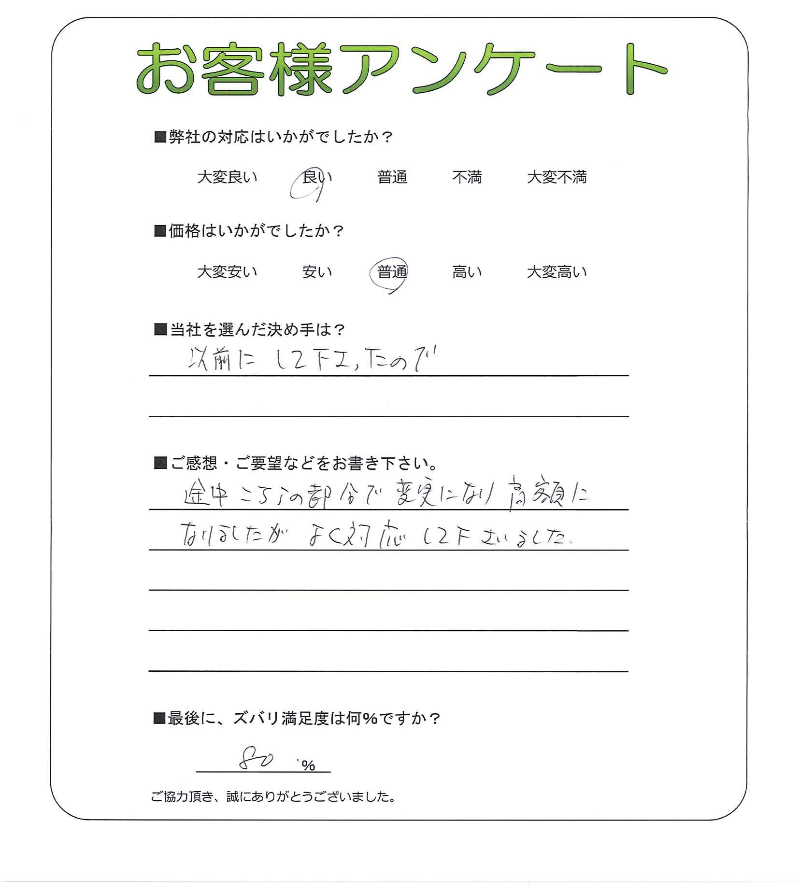 お客様アンケート
■弊社の対応はいかがでしたか？
大変良い 良い 普通 不満 大変不満
■価格はいかがでしたか？
大変安い 安い 普通 高い 大変高い
■当社を選んだ決め手は？
以前に して下さったので
■ご感想・ご要望などをお書き下さい。
途中こちらの部分で変更になり高額に
なりましたが よく対応して下さいました.
■最後に、ズバリ満足度は何％ですか？
80 %
ご協力頂き、誠にありがとうございました。